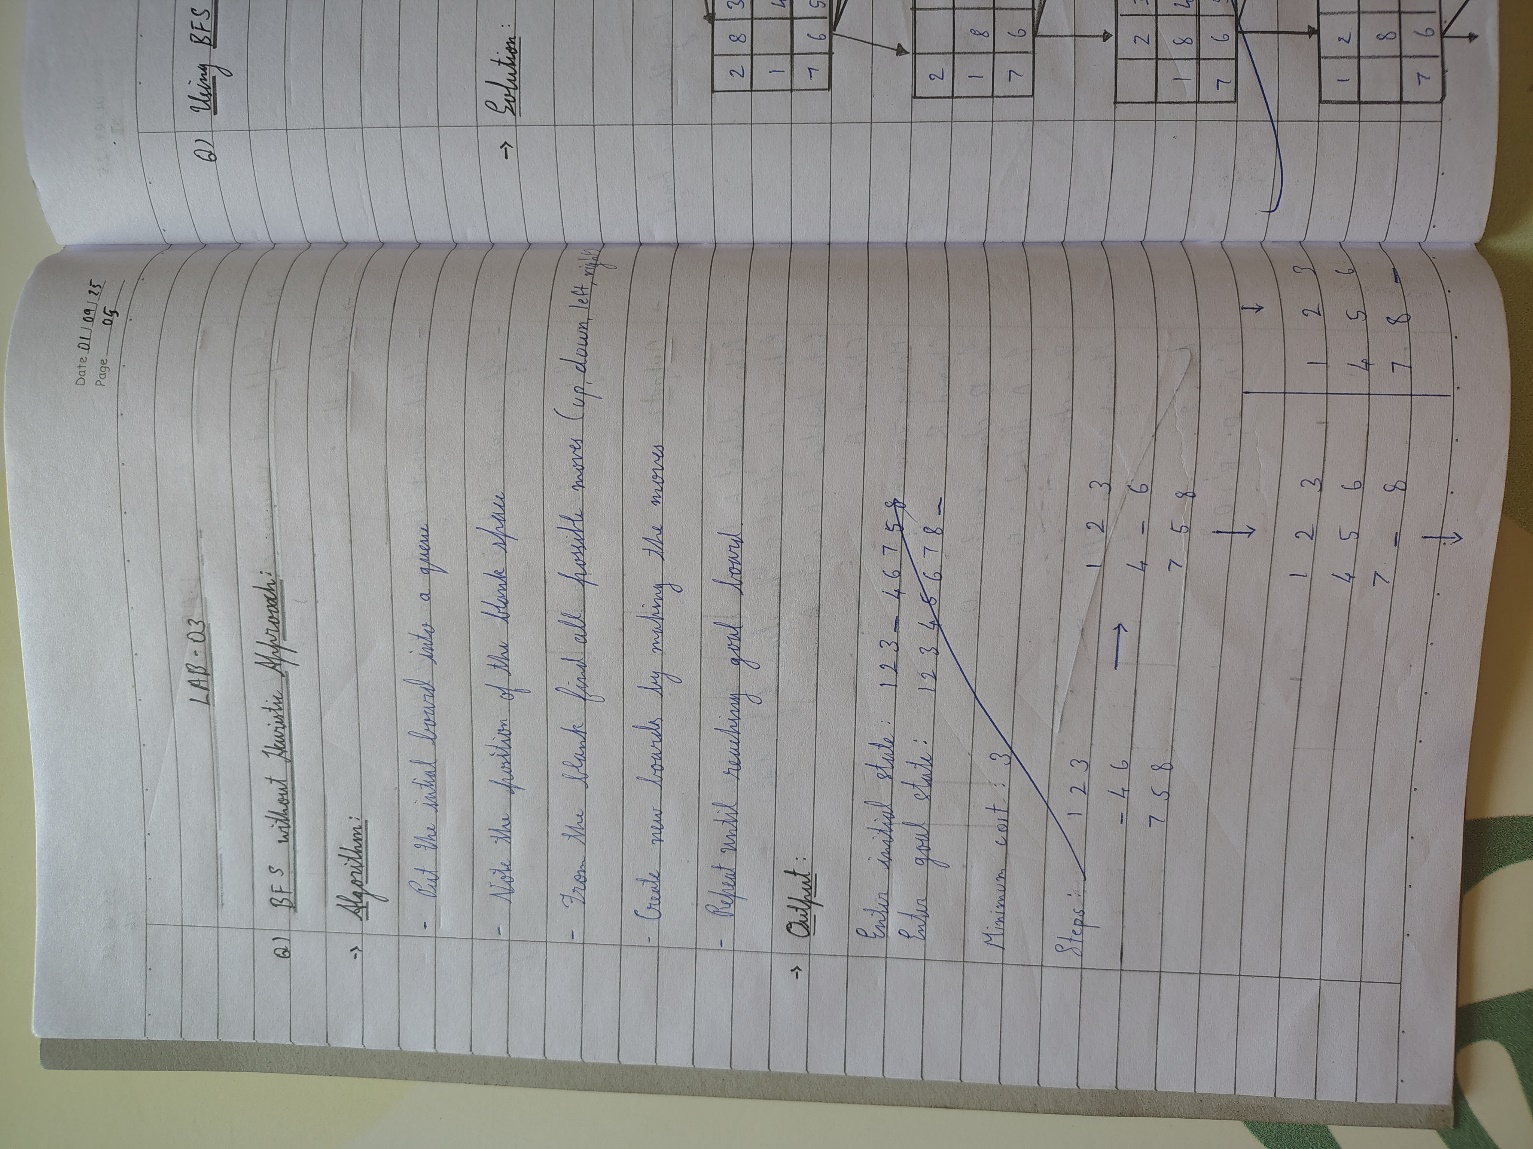 Date 01/09/25
Page 05
LAB-03
Q) BFS without Heuristic Approach:
→ Algorithm:
- Put the intial board into a queue
- Note the position of the blank space
- From the blank find all possible moves (up, down, left, right)
- Create new boards by making the moves
- Repeat until reaching goal board
→ Output:
Enter initial state: 1 2 3 _ 4 6 7 5 8
Enter goal state: 1 2 3 4 5 6 7 8 _
Minimum cost: 3
Steps:
1 2 3 1 2 3
- 4 6 → 4 - 6
7 5 8 7 5 8
↓ ↓
1 2 3 1 2 3
4 5 6 4 5 6
7 - 8 7 8 -
↓
Q) Using BFS
→ Solution:
2 8 3
1 4
7 6 5
2
1 8
7 6
2
1 8 4
7 6
1 2
8
7 6